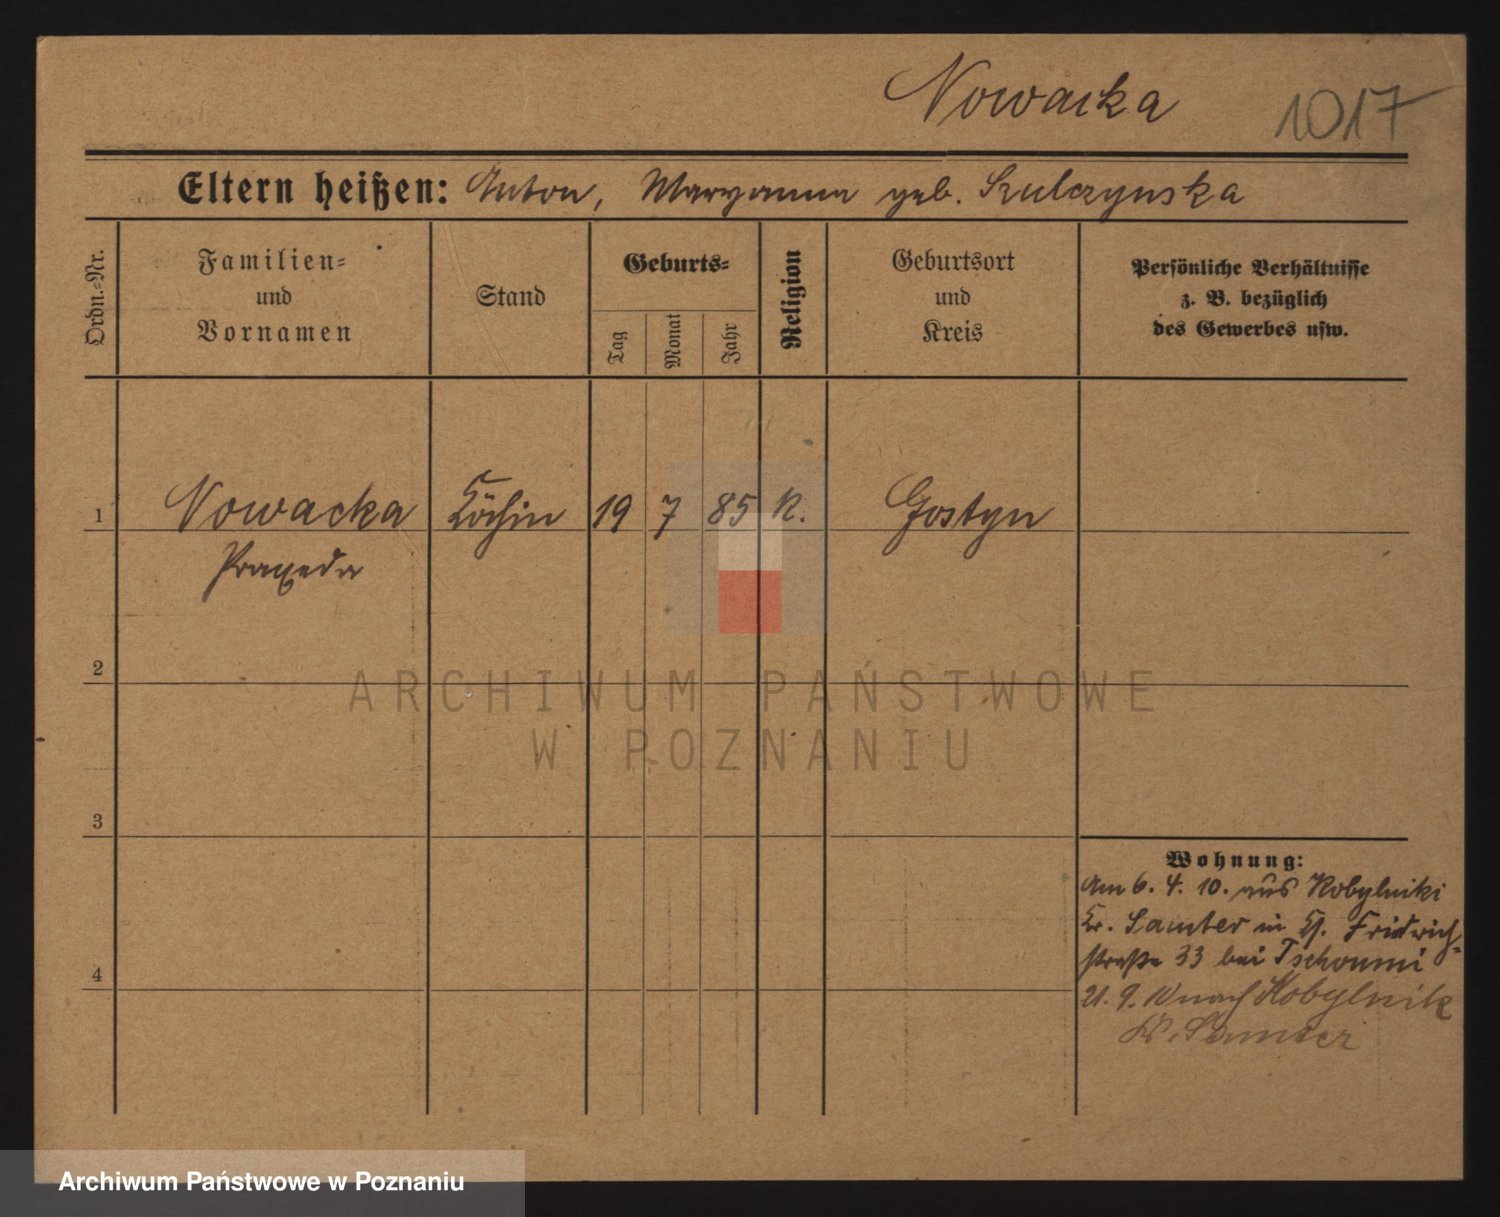 Nowacka 1017
Eltern heißen: Anton, Maryanna geb. Szulczynska
Ordn.-Nr.
Familien-
und
Vornamen
Stand
Geburts-
Tag
Monat
Jahr
Religion
Geburtsort
und
Kreis
Persönliche Verhältnisse
z. B. bezüglich
des Gewerbes usw.
1 Nowacka Köchin 19 7 85 K. Gostyn
Praxeda
2
3
4
Wohnung:
Am 6. 4. 10. aus Kobylniki
Kr. Samter in Friedrich-
straße 33 bei Tschounni
21. 9. 10 nach Kobylnik
Kr. Samter
ARCHIWUM PAŃSTWOWE
W POZNANIU
Archiwum Państwowe w Poznaniu